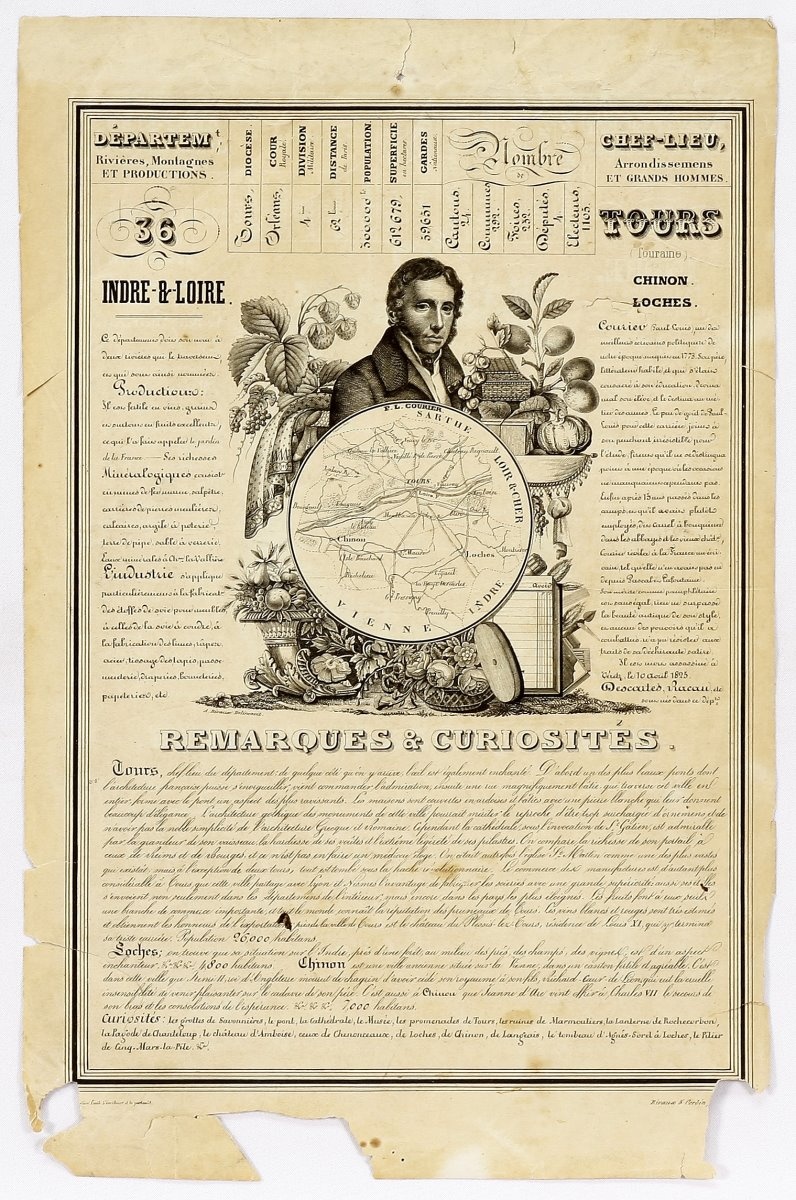 DÉPARTEMT,
Rivières, Montagnes
ET PRODUCTIONS.
36
INDRE-&-LOIRE.
DIOCÈSE.
Tours,
COUR Royale.
Orléans,
DIVISION Militaire.
4
DISTANCE de Paris.
POPULATION.
300000
SUPERFICIE en hectare
612679,
GARDES Nationaux.
59651
Nombre
de
Cantons,
24,
Communes
292.
Foires,
232,
Députés,
4
Electeurs,
1105.
CHEF-LIEU,
Arrondissemens
ET GRANDS HOMMES
TOURS
(Touraine)
CHINON.
LOCHES.
Ce département doit son nom à
deux rivières qui le traversent
et qui sont ainsi nommées.
Productions:
Il est fertile en vins, grains
et surtout en fruits excellents,
ce qui l'a fait appeler le jardin
de la France. Ses richesses
Minéralogiques consist
en mines de fer, marne, salpêtre,
carrières de pierres meulières,
calcaires, argile à poterie,
terre de pipe, sable à verrerie,
Eaux minérales à Chau la Vallière
L'industrie s'applique
particulièrement à la fabricat
des étoffes de soie pour meubles,
à celles de la soie à coudre, à
la fabrication des limes, râpes,
acier, tissage des tapis, passe
menterie, draperies, bonneteries,
papeteries, etc
Courier Paul Louis, un des
meilleurs écrivains politiques de
notre époque naquit en 1773. Son père,
littérateur habile et qui s'était
consacré à son éducation, devina
quel son élève et le destina au mé-
tier des armes. Le peu de goût de Paul-
Louis pour cette carrière joint à
son penchant irrésistible pour
l'étude, firent qu'il ne se distingua
point à une époque où les occasions
ne manquaient cependant pas.
Enfin après 15 ans passés dans les
camps ou qu'il avait plutôt
employés, dit-on, à bouquiner
dans les abbayes et les vieux chât.
Courier révéla à la France un écri-
vain, tel qu'elle n'en avait pas eu
depuis Pascal et Lafontaine.
Son mérite comme pamphlétaire
est sans égal, rien ne surpasse
la beauté antique de son style,
et aucun des pouvoirs qu'il a
combattus n'a pu résister aux
traits de sa déchirante satire.
Il est mort assassiné à
Véretz, le 10 avril 1825.
Descartes, Racan, etc
sont nés dans ce dépt.
P. L. COURIER
SARTHE
LOIR & CHER
INDRE
VIENNE
TOURS
Chinon
Loches
Richelieu
Preuilly
Avoir
REMARQUES & CURIOSITÉS.
Tours, chef lieu du département: de quelque côté qu'on y arrive, l'œil est également enchanté. D'abord un des plus beaux ponts dont
l'architecture française puisse s'enorgueillir, vient commander l'admiration, ensuite une rue magnifiquement bâtie qui traverse cet ville en
entier, forme avec le pont un aspect des plus ravissants. Les maisons sont couvertes en ardoises et bâties avec une pierre blanche qui leur donnent
beaucoup d'élégance. L'architecture gothique des monuments de cette ville pourrait mériter le reproche d'être trop surchargée d'ornemens et de
n'avoir pas la noble simplicité de l'architecture Grecque et Romaine. Cependant la cathédrale, sous l'invocation de St Gatien, est admirable
par la grandeur de son vaisseau, la hardiesse de ses voûtes et l'extrême légèreté de ses pilastres. On compare la richesse de son portail à
ceux de Reims et de Bourges, et ce n'est pas en faire un médiocre éloge. On citait autrefois l'église St Martin comme une des plus vastes
qui existât, mais à l'exception de deux tours, tout est tombé sous la hache révolutionnaire. Le commerce des manufactures est d'autant plus
considérable à Tours que cette ville partage avec Lyon et Nîmes l'avantage de fabriquer les soieries avec une grande supériorité, aussi ses étoffes
s'envoient, non seulement dans les départements de l'intérieur, mais encore dans les pays les plus éloignés. Les fruits font à eux seuls
une branche de commerce importante, et tout le monde connaît la réputation des pruneaux de Tours. Les vins blancs et rouges sont très estimés
et obtiennent les honneurs de l'exportation, près de la ville de Tours est le château du Plessis les Tours, résidence de Louis XI, qui y termina
sa triste carrière. Population 26000 habitans.
Loches; on trouve que sa situation sur l'Indre, près d'une forêt, au milieu des prés, des champs, des vignes, est d'un aspect
enchanteur, &c &c &c, 4800 habitans. Chinon est une ville ancienne située sur la Vienne, dans un canton fertile et agréable. C'est
dans cette ville que Henri II, roi d'Angleterre mourut de chagrin d'avoir cédé son royaume à son fils, Richard-Cœur-de-Lion, qui eut la cruelle
insensibilité de venir plaisanter sur le cadavre de son père. C'est aussi à Chinon que Jeanne d'Arc vint offrir à Charles VII le secours de
son bras et les consolations de l'espérance. &c &c &c, 7,000 habitans.
Curiosités: les grottes de Savonnières, le pont, la Cathédrale, le Musée, les promenades de Tours, les ruines de Marmoutiers, la lanterne de Rochecorbon,
la Pagode de Chanteloup, le château d'Amboise, ceux de Chenonceaux, de Loches, de Chinon, de Langeais, le tombeau d'Agnès-Sorel à Loches, le Pilier
de Cinq-Mars-la-Pile. &c